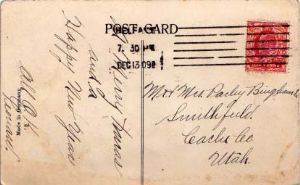 POST CARD
7.30 PM
DEC 13 09
Merry Xmas
and a
Happy New Year
All O.K.
Made in
Mr & Mrs Parley Bingham
Smithfield
Cache Co
Utah